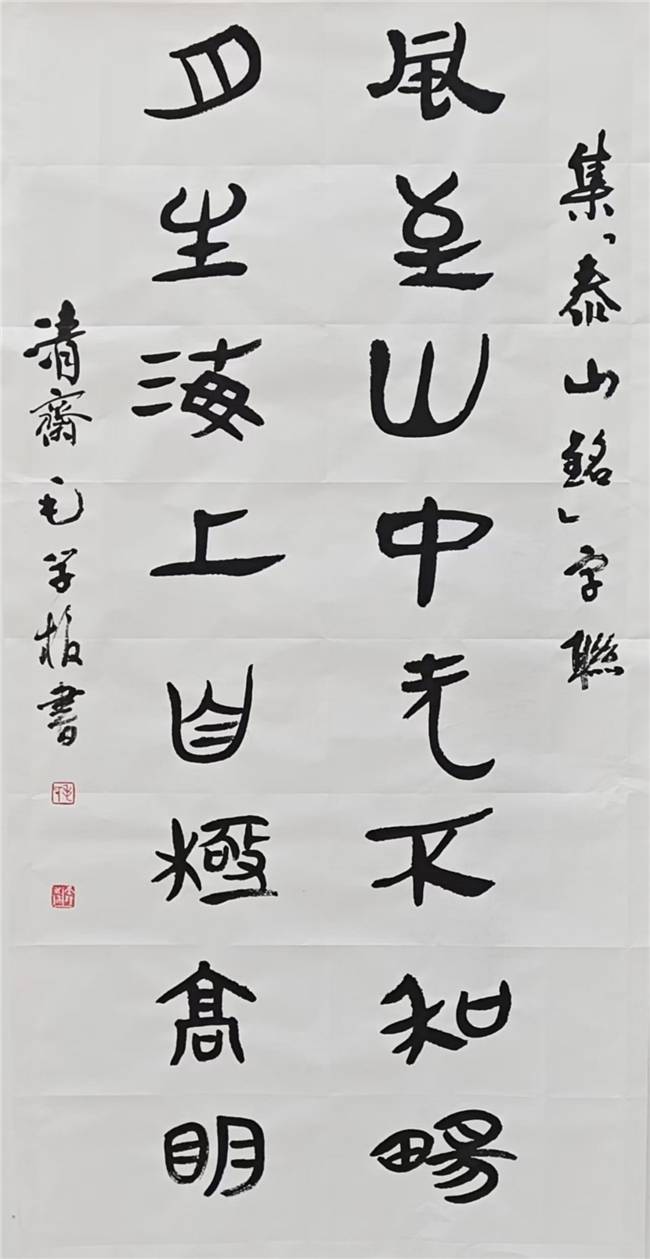 集「泰山銘」字聯
風至山中无不和畼
月生海上自極高明
清齋毛学書